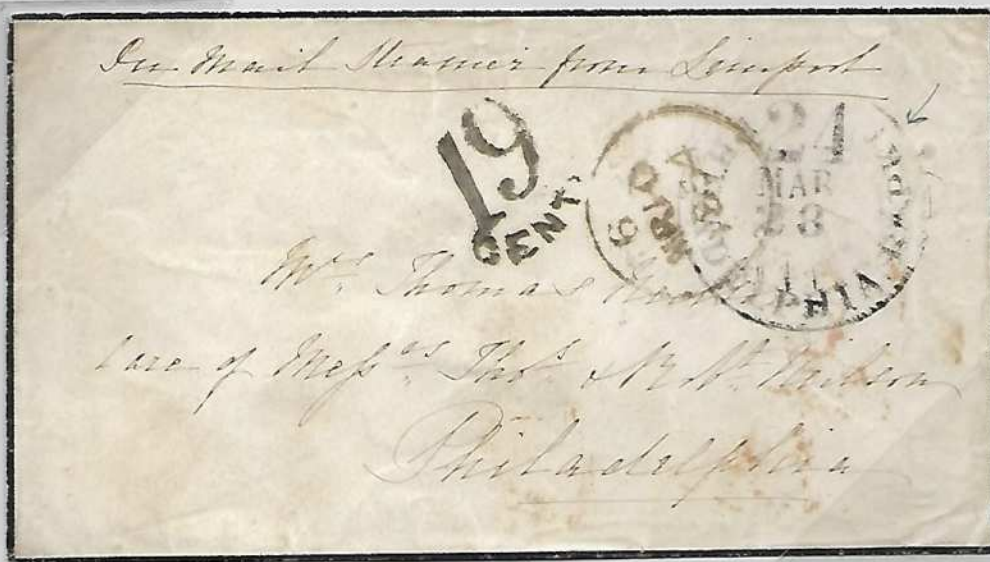 Per Mail Steamer from Liverpool
19
CENT.
24
MAR
PHILADELPHIA
Mrs. Thomas
Care of Messrs Thos & Robt. Wilson
Philadelphia